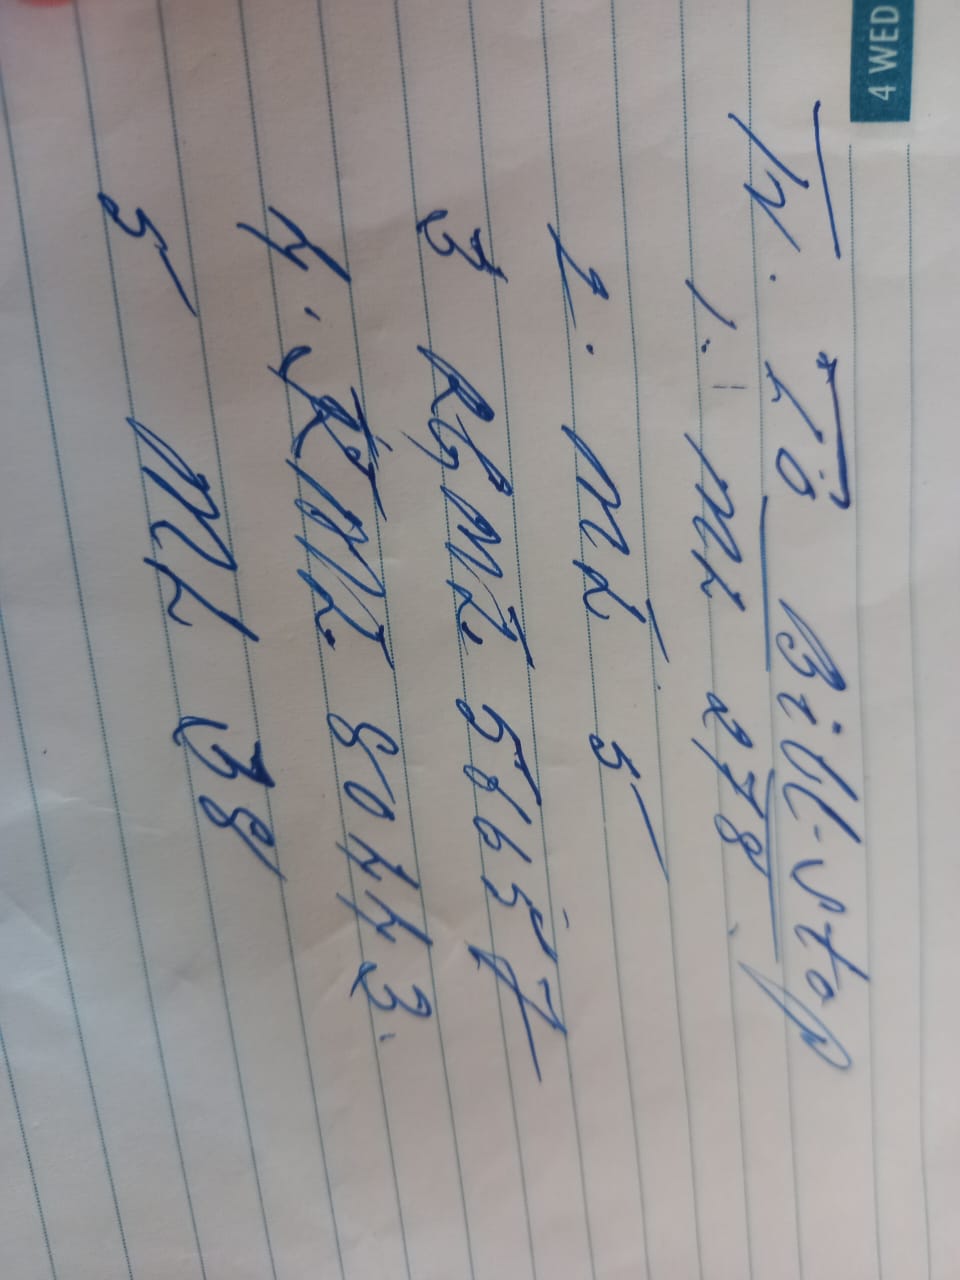 4 WED
To Bill-stap
1. ML 278
2. ML 5
3 RGML 56657
4. ML 80443.
5 ML 38